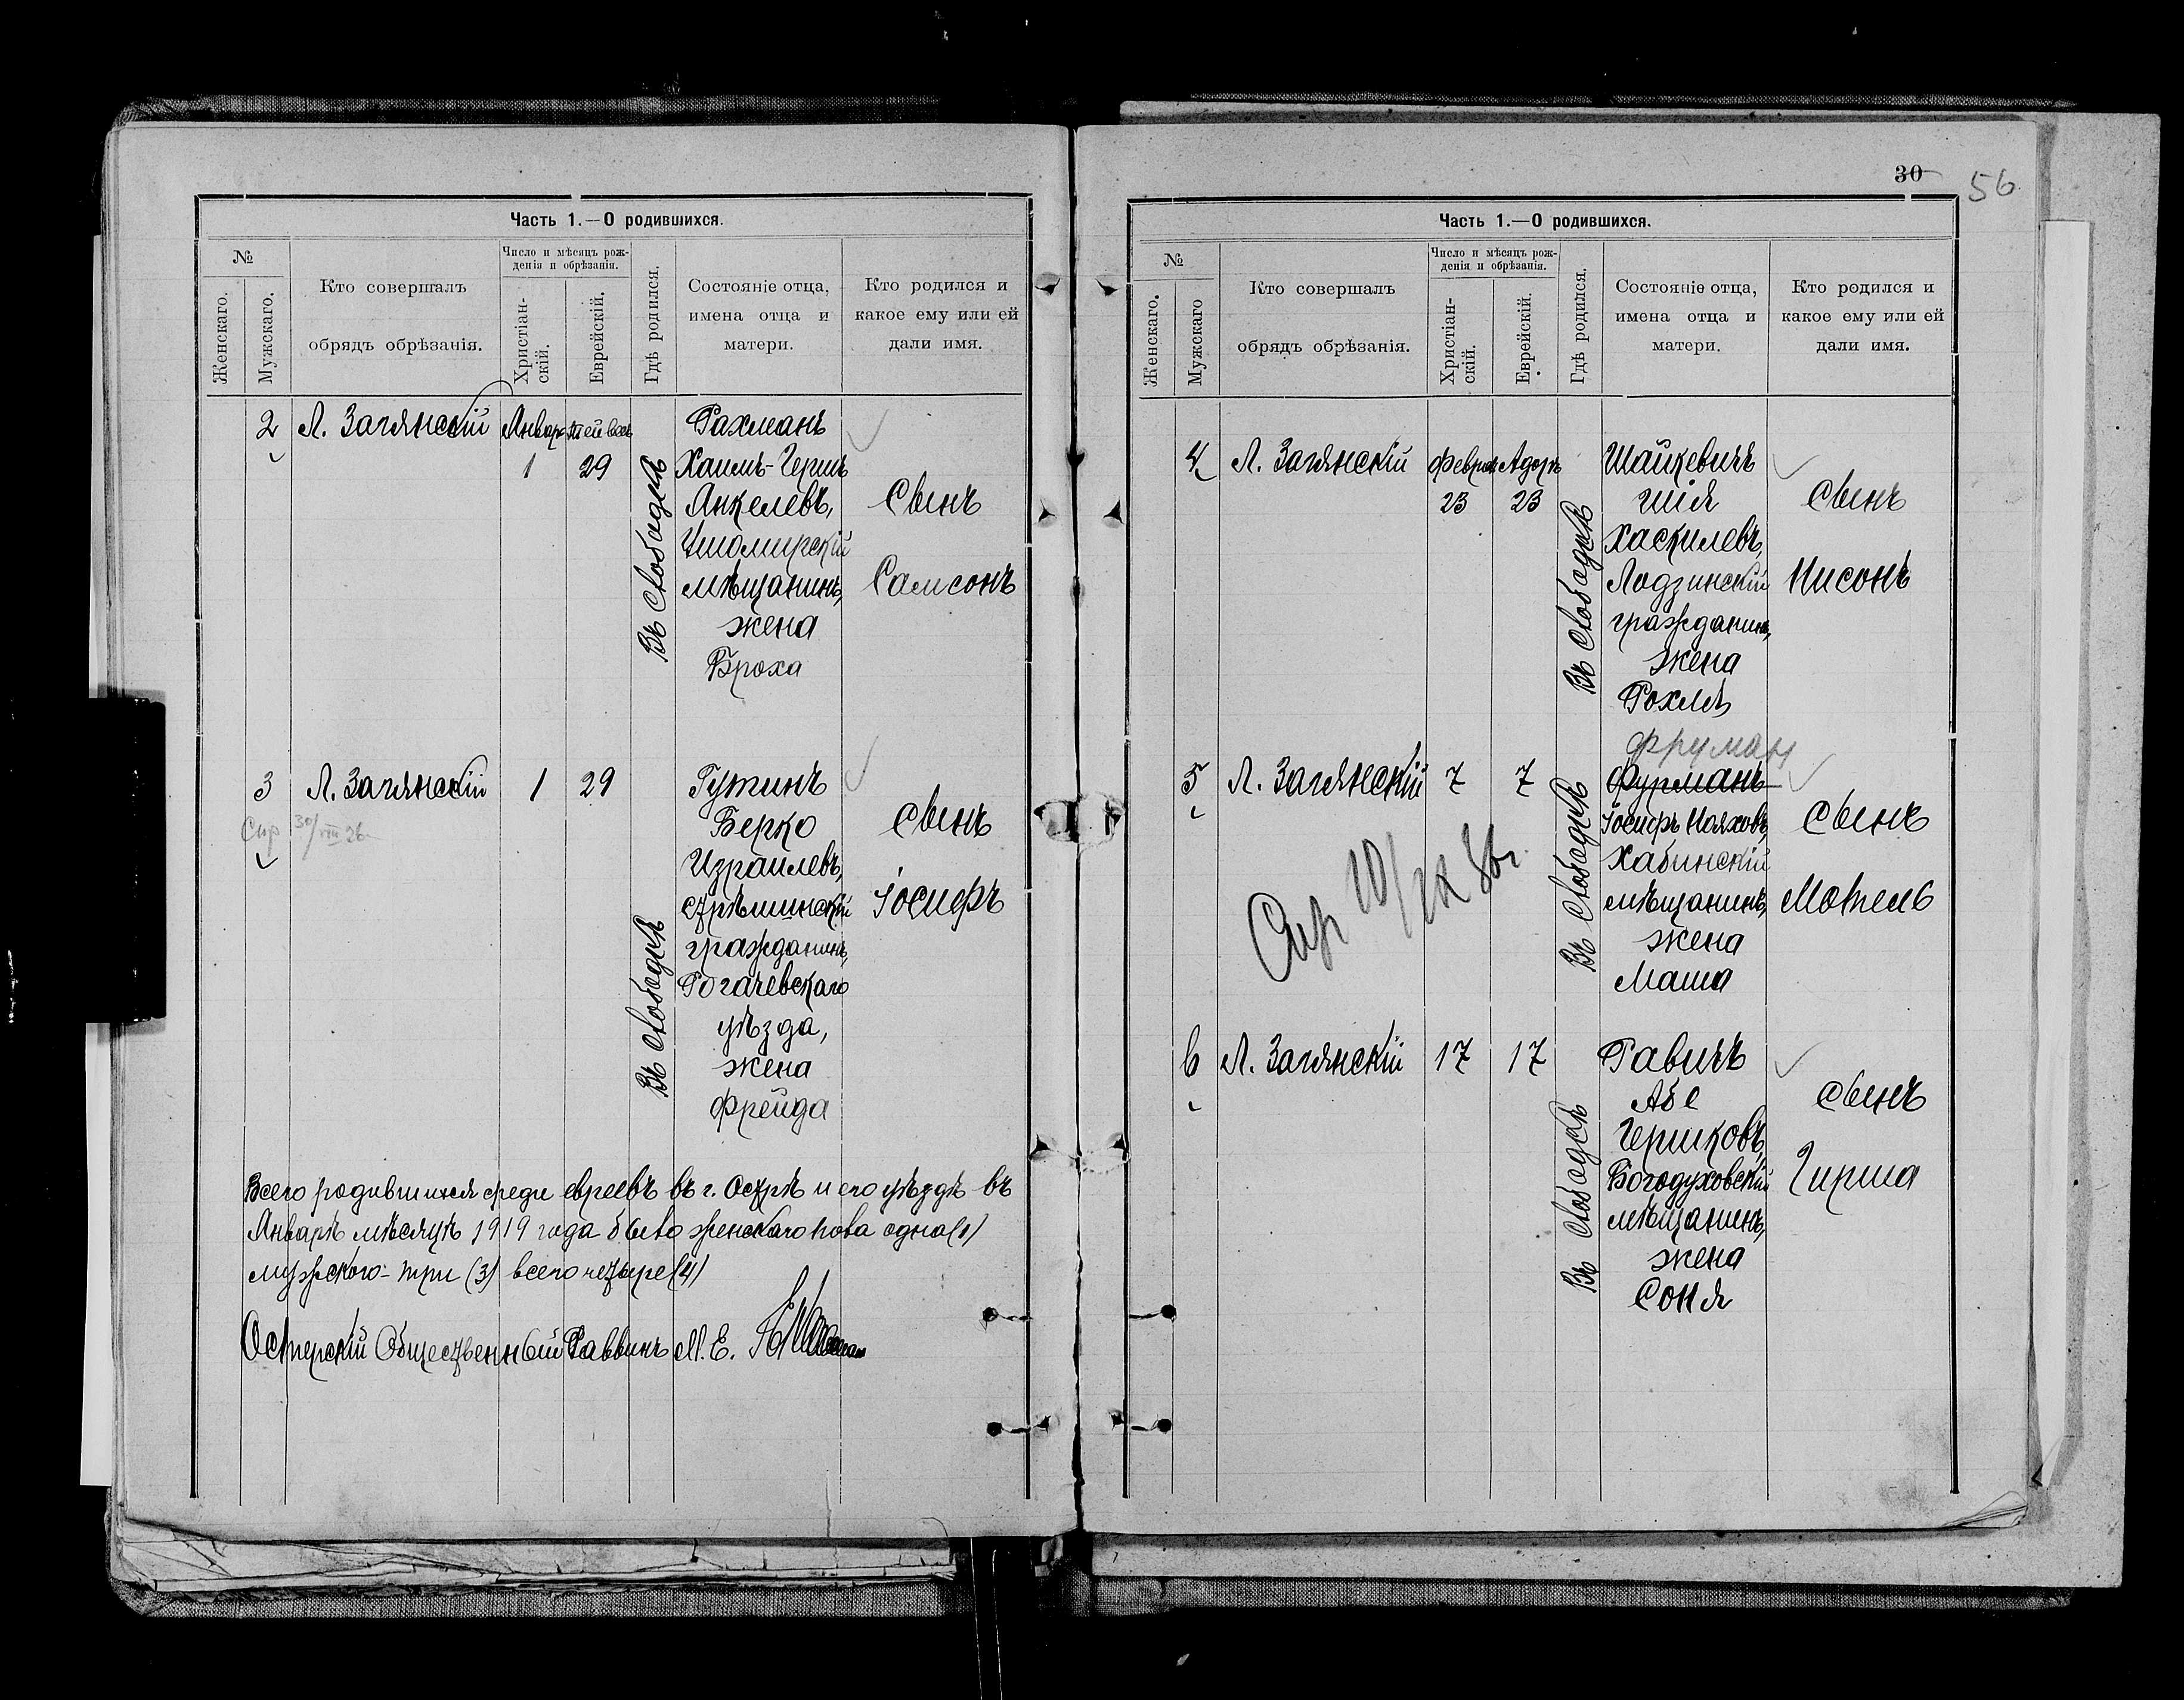 Часть 1.—О родившихся.
№
Женскаго.
Мужскаго.
Кто совершалъ
обрядъ обрѣзанія.
Число и мѣсяцъ рож-
денія и обрѣзанія.
Христіан-
скій.
Еврейскій.
Гдѣ родился.
Состояніе отца,
имена отца и
матери.
Кто родился и
какое ему или ей
дали имя.
2 Л. Заглянскій Январ
1 29
Въ Слободѣ
Рахманъ
Хаимъ-Герш
Янкелевъ,
Ушомирскій
мѣщанинъ,
жена
Броха
Сынъ
Самсонъ
3 Л. Заглянскій 1 29
30/VIII 26
Въ Слободѣ
Гутинъ
Берко
Израилевъ,
Стрѣшинскій
гражданинъ,
Рогачевскаго
уѣзда,
жена
Фрейда
Сынъ
Іосифъ
Всего родившихся среди евреевъ въ г. Острѣ и его уѣздѣ въ
Январѣ мѣсяцѣ 1919 года было женскаго пола одна (1)
мужского - три (3) всего четыре (4)
Остерскій Общественный Раввинъ М. Е.
30
56
Часть 1.—О родившихся.
№
Женскаго.
Мужскаго
Кто совершалъ
обрядъ обрѣзанія.
Число и мѣсяцъ рож-
денія и обрѣзанія.
Христіан-
скій.
Еврейскій.
Гдѣ родился.
Состояніе отца,
имена отца и
матери.
Кто родился и
какое ему или ей
дали имя.
4 Л. Заглянскій Феврал Адоръ
23 23
Въ Слободѣ
Шайкевичъ
Шія
Хаскилевъ,
Лодзинскій
гражданинъ,
жена
Рохлѣ
Сынъ
Нисонъ
5 Л. Заглянскій 7 7
Въ Слободѣ
Фруман
Фурманъ
Іосифъ Нояховъ,
Хабинскій
мѣщанинъ,
жена
Маша
Сынъ
Мотель
6 Л. Заглянскій 17 17
Въ Слободѣ
Равичъ
Абе
Гершковъ,
Богодуховскій
мѣщанинъ,
жена
Соня
Сынъ
Гирша